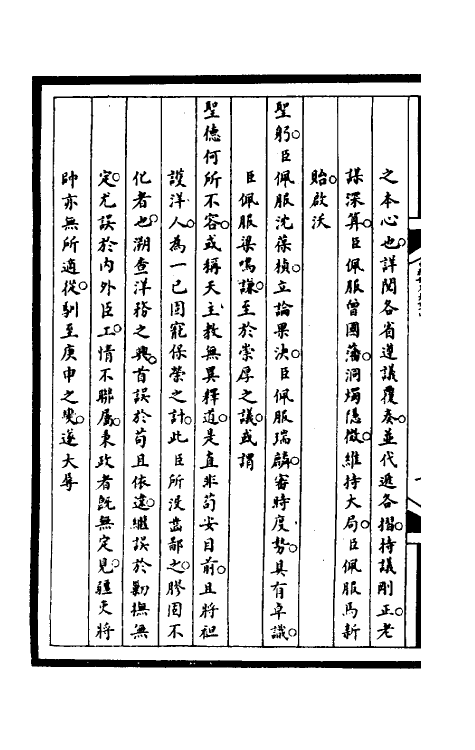 之本心也。詳閱各省遵議覆奏。並代遞各摺。持議剛正。老
謀深算。臣佩服曾國藩。洞燭隱微。維持大局。臣佩服馬新
貽。啟沃
聖躬。臣佩服沈葆楨。立論果決。臣佩服瑞麟。審時度勢。具有卓識。
臣佩服梁鳴謙。至於崇厚之議。或謂
聖德何所不容。或稱天主教無異釋道。是直非苟安目前。且將袒
護洋人。為一己固寵保榮之計。此臣所浸齒鄙之。膠固不
化者也。溯查洋務之興。首誤於苟且依違。繼誤於勦撫無
定。尤誤於內外臣工。情不聯屬。秉政者既無定見。疆吏將
帥亦無所適從。馴至庚申之變。遂大辱